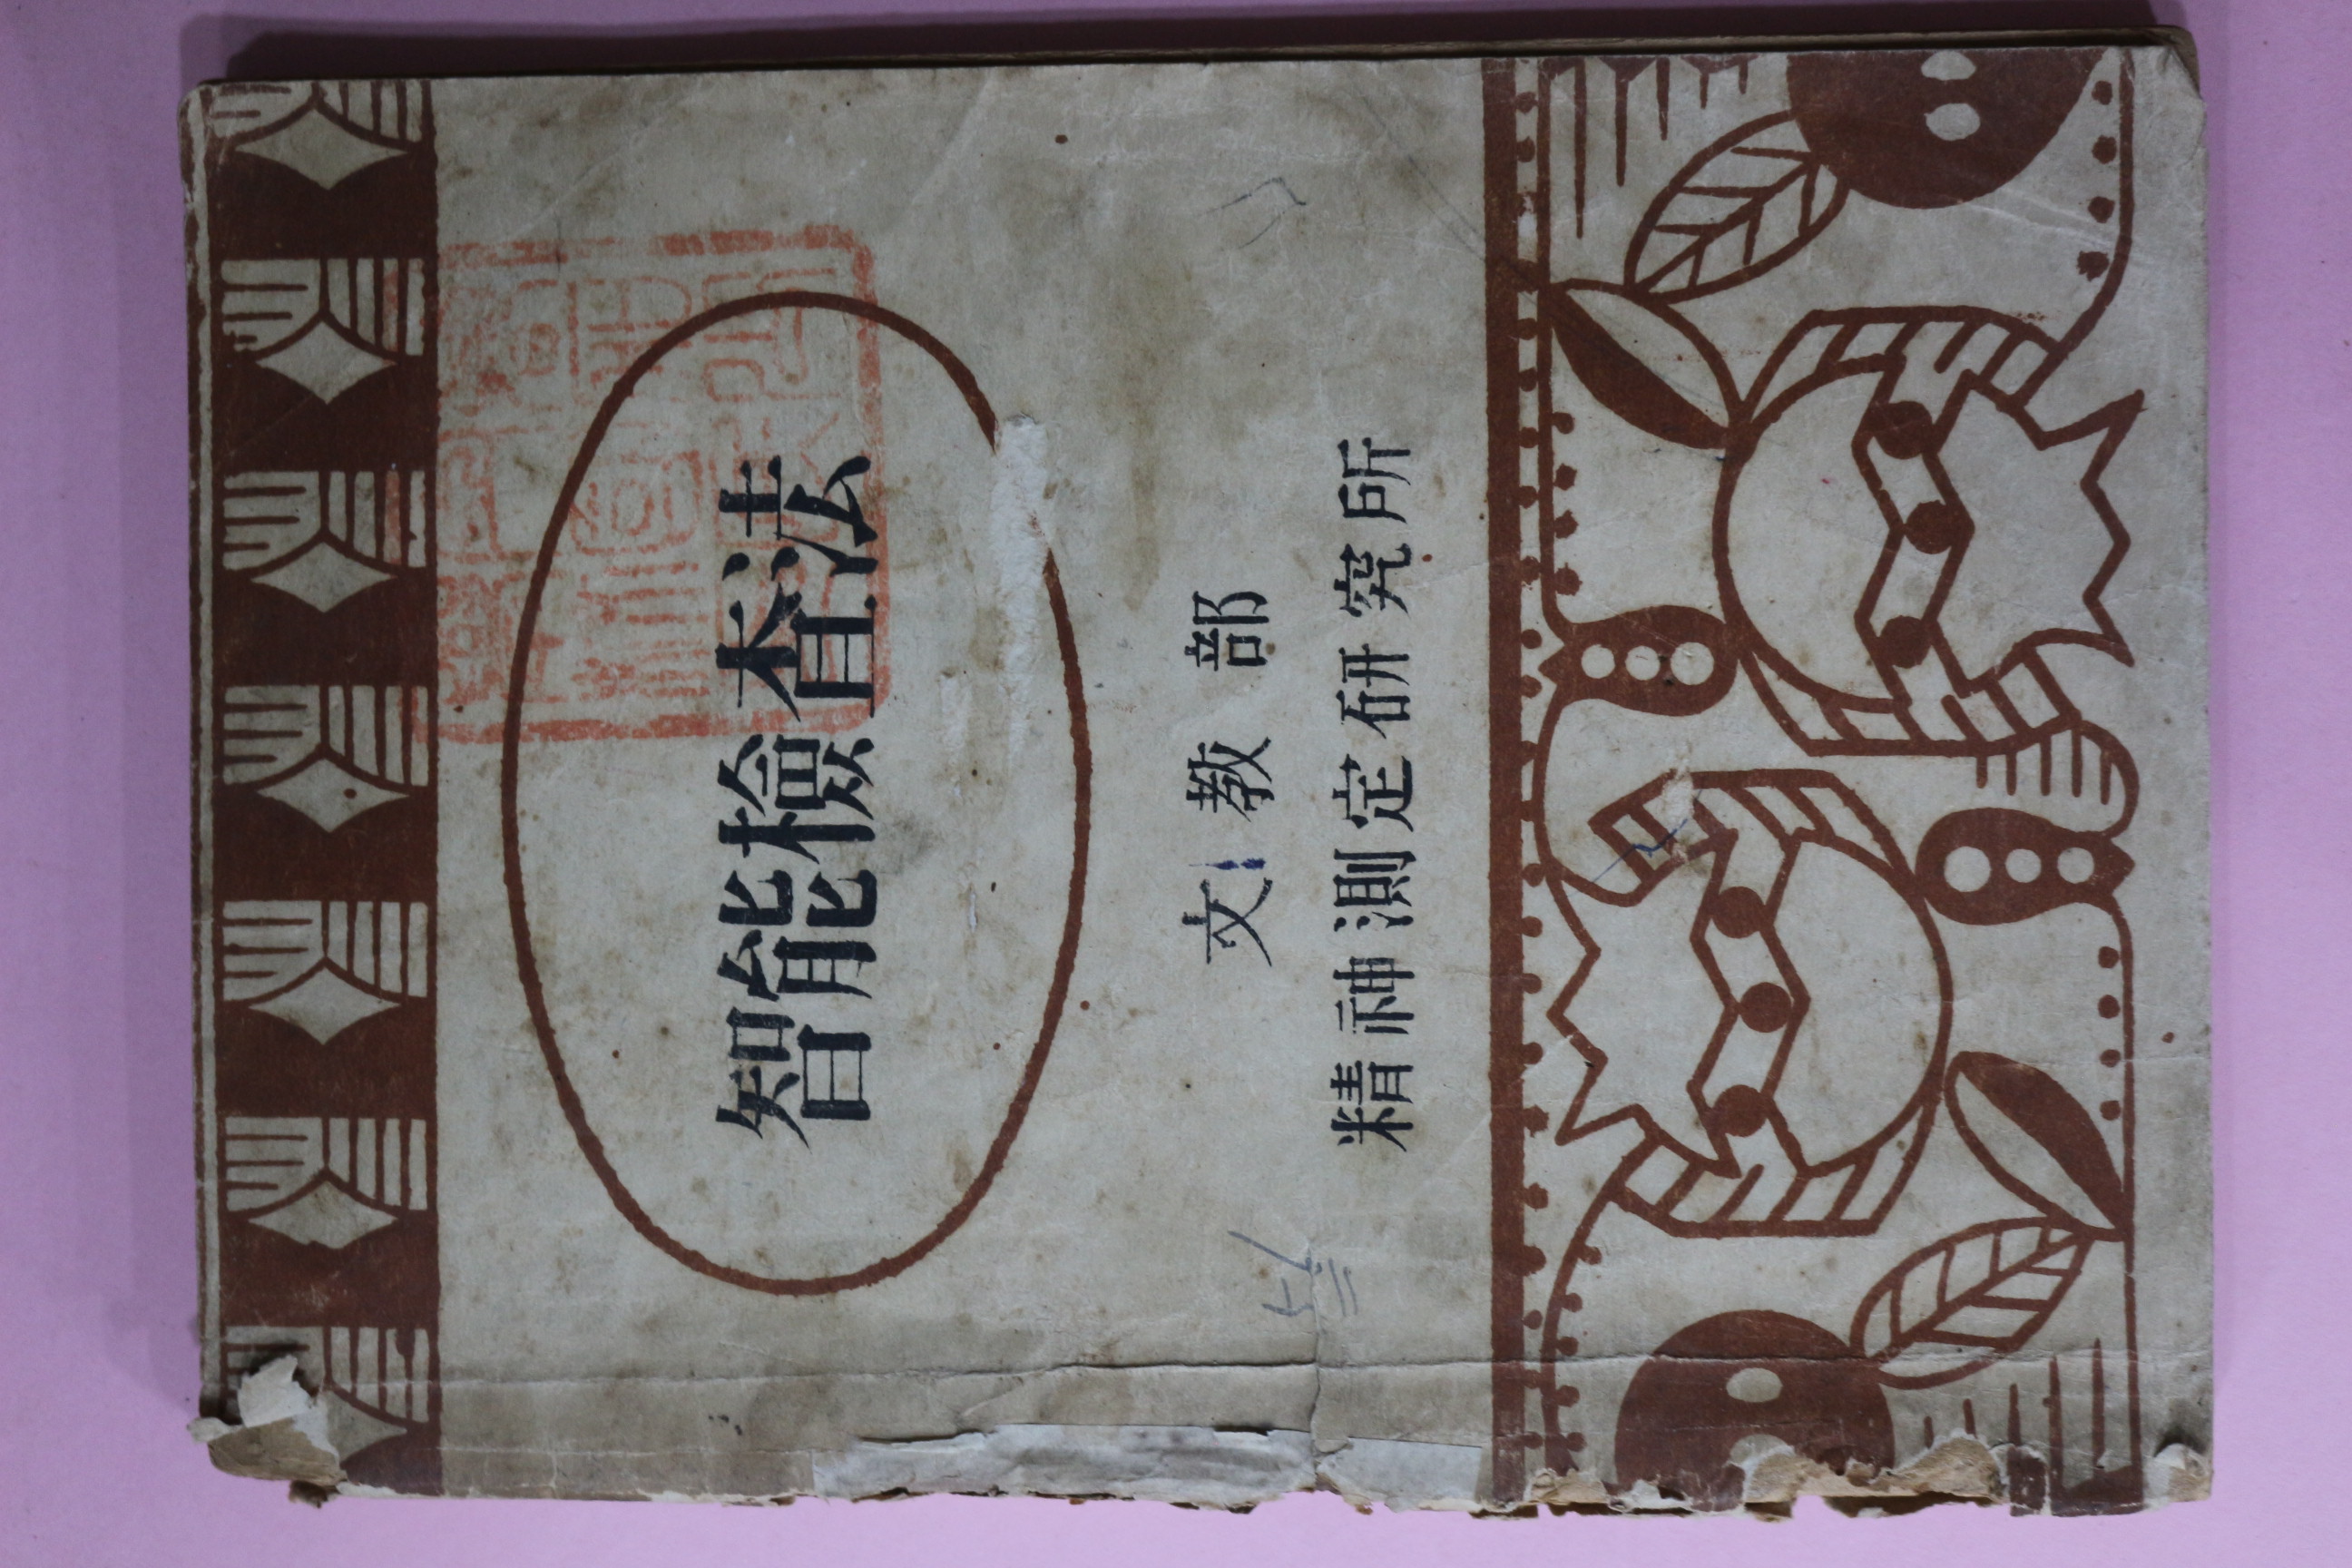 智能檢查法
文教部
精神測定研究所